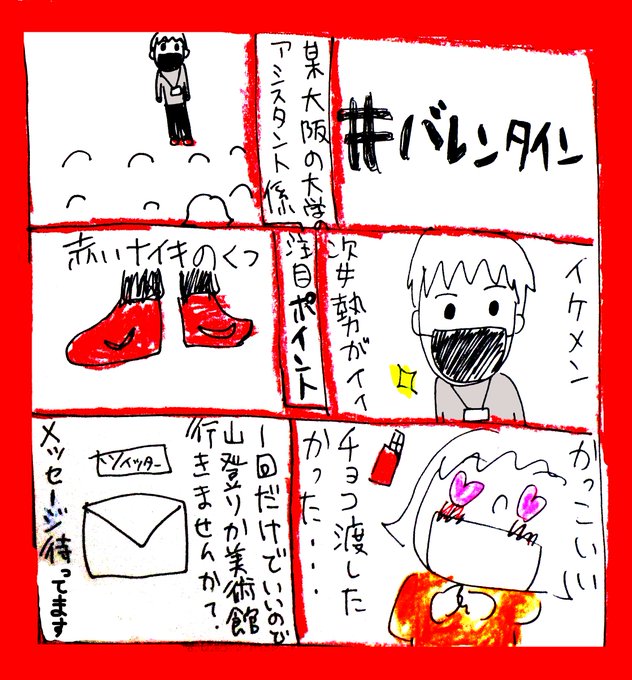 #バレンタイン
某大阪の大学の
アシスタント係
イケメン
姿勢がイイ
注目ポイント
赤いナイキのくつ
かっこいい
チョコ渡した
かった・・・・
1回だけでいいので
山登りか美術館
行きませんか?
ツイッター
メッセージ待ってます